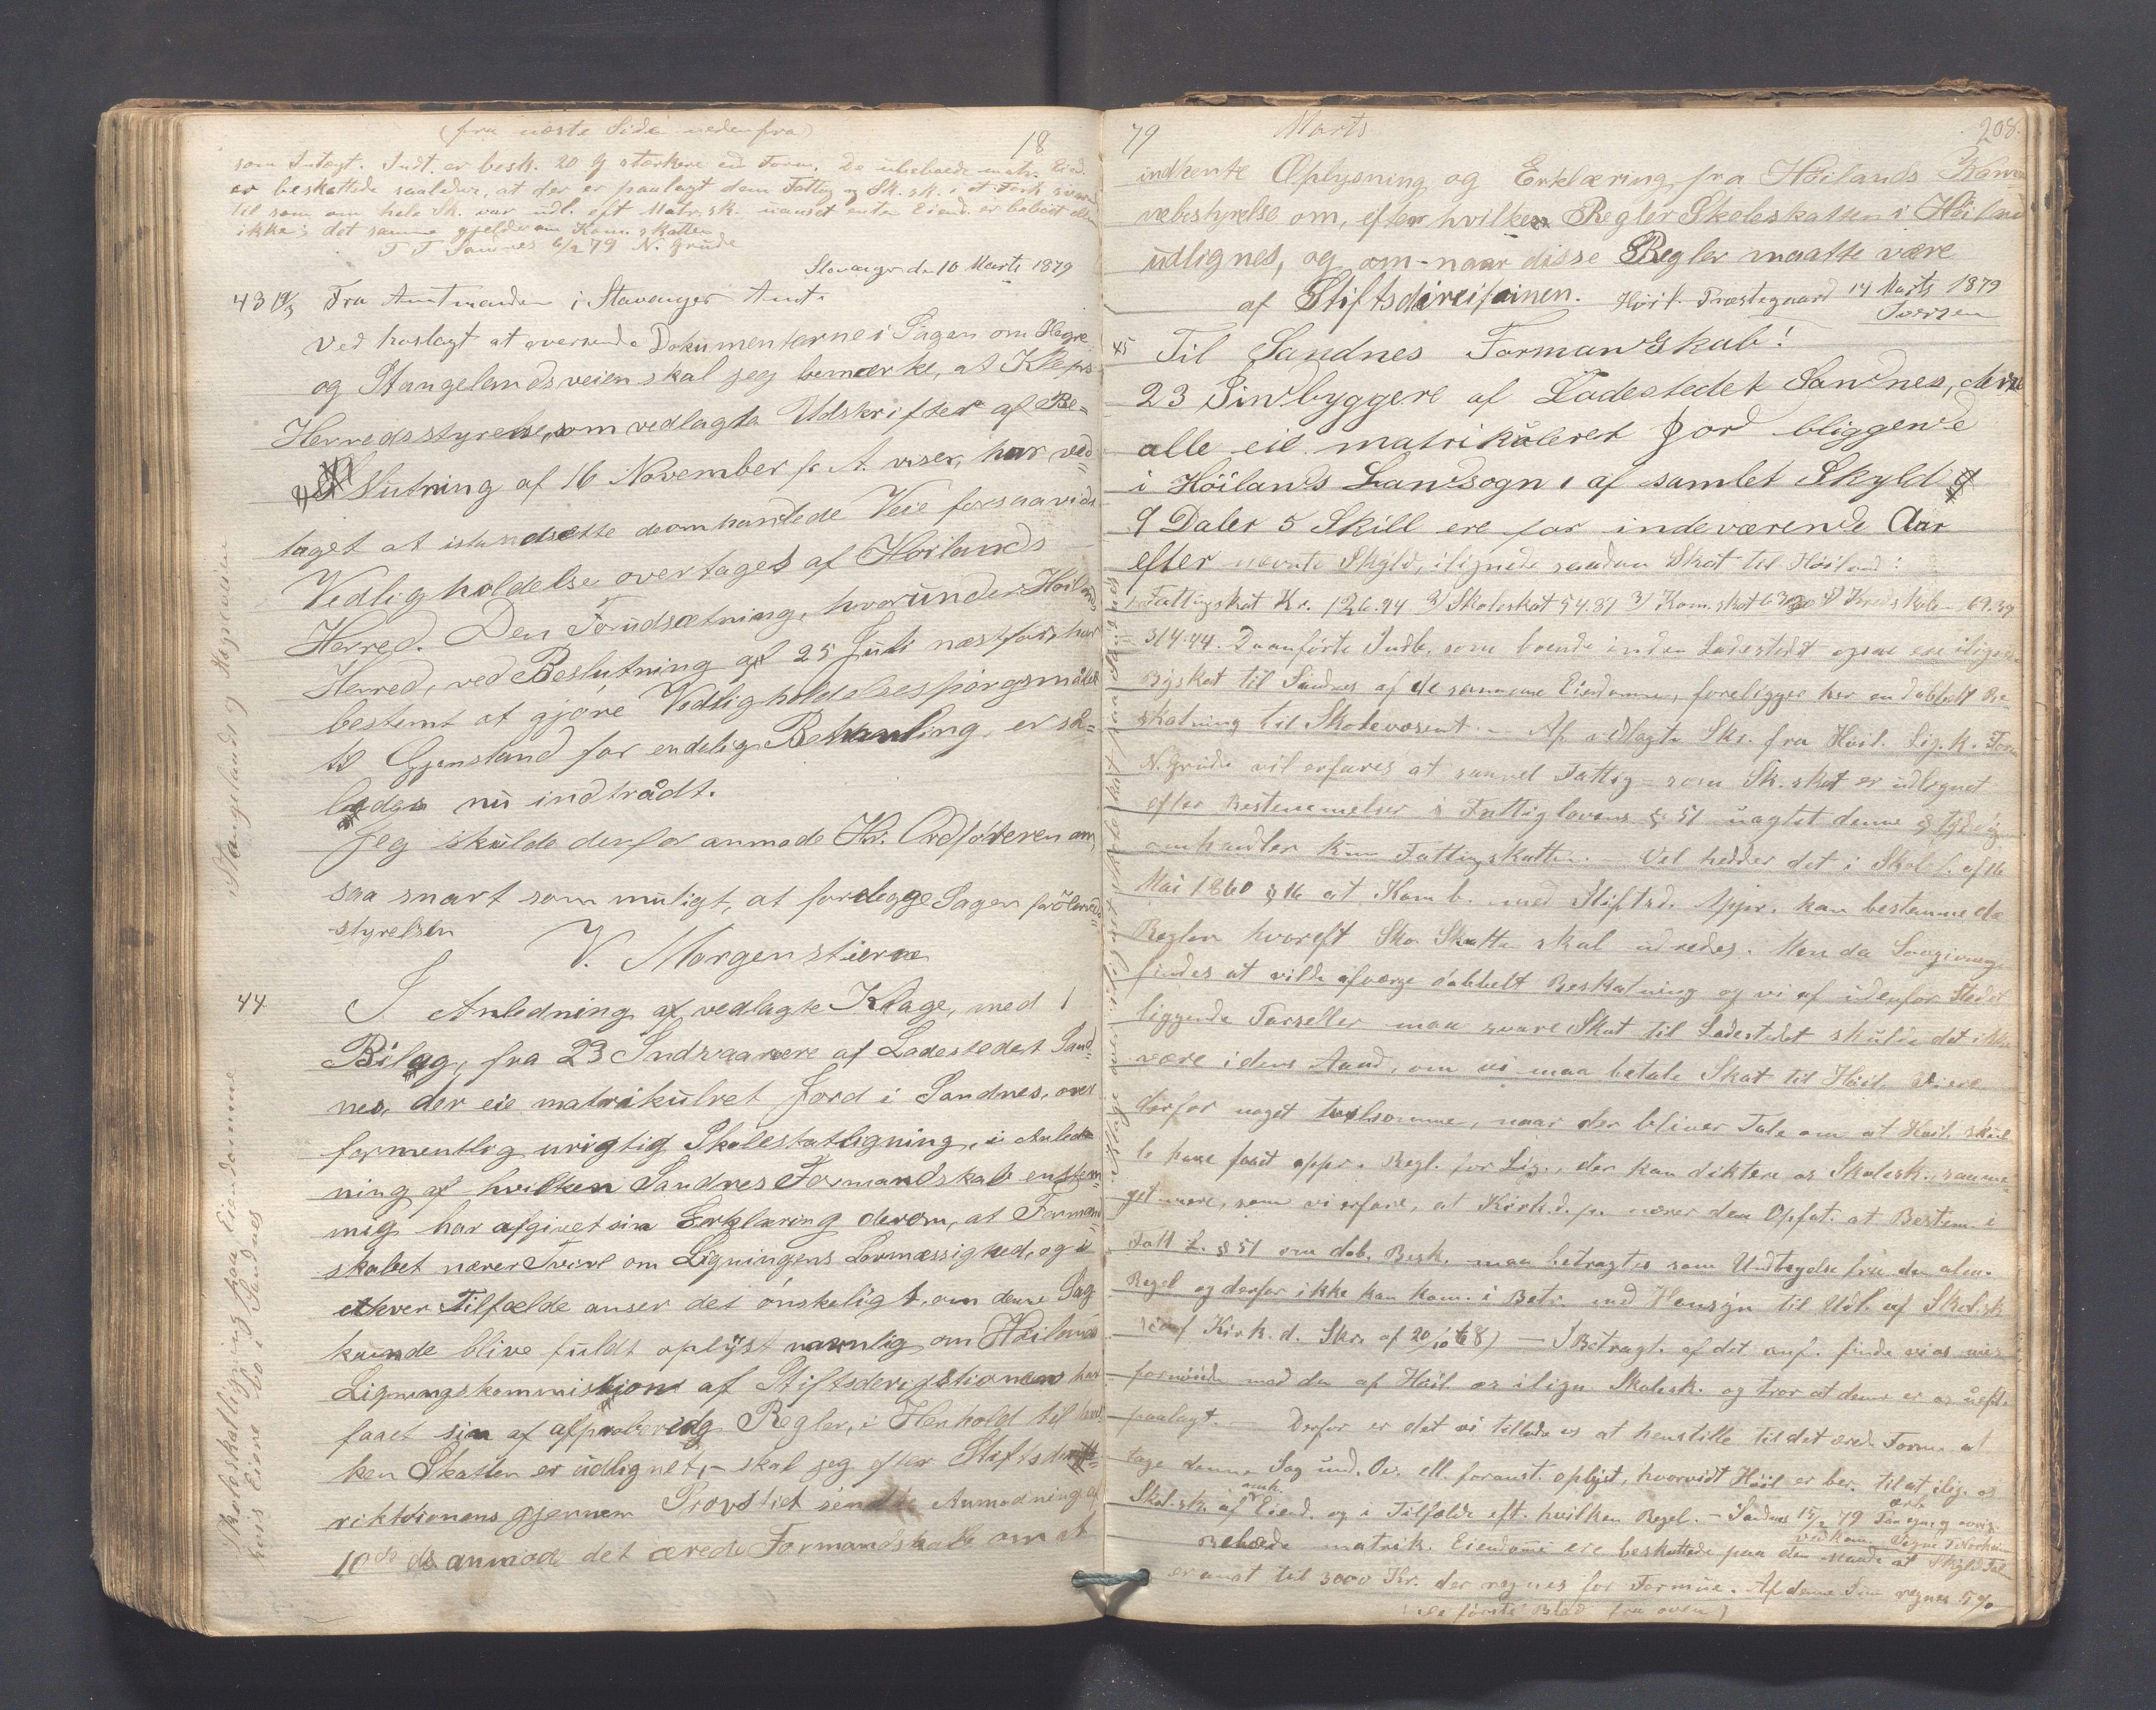 (fra næste Side nedenfra)
18
som Indtægt. Indt. er besk. 20 g stærkere end Form. De ubeboede matr. Eiend.
er beskattede saaledes, at der er paalagt dem Fattig og Sk. sk. i et Forh. svar.
til som om hele Sk. var udl. eft Matr. sk. uanset enten Eiend. er beboet eller
ikke; det samme gjelder om Kom. skatten
T T Sandnes 6/2 79 N. Grude
Stavanger den 10 Marts 1879
43 19/3 Fra Amtmanden i Stavanger Amt.
Ved hoslagt at oversende Dokumenterne i Sagen om Hogre
og Stangelandsveien skal jeg bemærke, at Kleps
Herredsstyrelse, som vedlagte Udskrifter af Be-
slutning af 16 November f. A. viser, har ved-
taget at istandsætte de omhandlede Veie forsaavidt
Vedligholdelse overtages af Høilands
Herred. Den Forudsætning, hvorunder Høilands
Herred, ved Beslutning af 25 Juli næstfør, har
bestemt at gjøre Vedligholdelsesspørgsmålet
til Gjenstand for endelig Behanling, er så-
ledes nu indtrådt.
Jeg skulde derfor anmode Hr. Ordføreren om,
saa snart som muligt, at forelegge Sagen for Herreds-
styrelsen
V. Morgenstierne
Stangelands og Hogreveien
44
I Anledning af vedlagte Klage, med 1
Bilag, fra 23 Indvaanere af Ladestedet Sand-
nes, der eie matrikulret Jord i Sandnes, over
formentlig urigtig Skoleskatligning, i Anled-
ning af hvilken Sandnes Formandskab enstem-
mig har afgivet sin Erklæring derom, at Formand-
skabet nærer Tvivl om Ligningens Lovmæssighed, og i
ethver Tilfælde anser det ønskeligt, om denne Sag
kunde blive fuldt oplyst navnlig om Høilands
Ligningskommission af Stiftsderigstionen har
faaet sin af approbering Regler, i Henhold til hvil-
ken Skatten er udlignet, - skal jeg efter Stiftsdi-
riktionens gjennem Provstiet sendte Anmodning af
10de ds anmode det ærede Formandskab om at
Skoleskatligning paa Eiendomme
hvis Eiere bo i Sandnes
79 Marts 208.
indhente Oplysning og Erklæring fra Høilands Kom
nebestyrelse om, efter hvilken Regler Skoleskatten i Høiland
udlignes, og om - naar disse Regler maatte være
af Stiftsdireifoinen. Höil. Præstegaard 14 Marts 1879
Iversen
45 Til Sandnes Formandskab!
23 Indbyggere af Ladestedet Sandnes, der
alle eie matrikuleret Jord bliggende
i Höilands Landsogn, af samlet Skyld
9 Daler 5 Skill ere for indeværende Aar
efter nævnte Skyld, ilignede saadan Skat til Höiland:
1) Fattigskat Kr. 126.94 2) Skoleskat 54.87 3) Kom. skat 63.20 4) Kredsskolen 69.39
= 314.44. De anførte Indb. som boende inden Ladestedet ogsaa ere ilignet
Byskat til Sandnes af de samme Eiendomme, foreligger her en dobbelt Be-
skatning til Skolevæsent. - Af vedlagte Skr. fra Höil. Lig. k. Form
N. Grude vil erfares at saavel Fattig- som Sk. skat er udlignet
efter Bestemmelser i Fattiglovens § 51 uagtet denne § tydelig
omhandler kun Fattigskatten. - Vel hedder det i Skol. l. af 16
Mai 1860 § 16 at Kom b. med Stiftsd. Appr. kan bestemme de
Regler hvoreft Sko. Skatten skal udredes. Men da Lovgivningen
findes at ville afværge dobbelt Beskatning og vi af udenfor Stedet
liggende Parseller maa svare Skat til Ladestedet skulde det ikke
være i dens Aand, om vi maa betale Skat til Höil. Vi ere
derfor noget tvilsomme, naar der bliver Tale om at Höil. skul-
le have faaet appr. Regl. for Lig., der kan diktere os Skolesk., saame-
get mere, som vi erfare, at Kirk. d. p. nærer den Opfat. at Bestem. i
Fatt L. § 51 om dob. Besk. maa betragtes som Undtagelse fra den alm.
Regel og derfor ikke kan kom. i Betr. med Hensyn til Udl. af Skol.sk
(Kirk. d. Skr. af 20/10 68) - I Betragt. af det anf. finde vi os mis-
fornøide med den af Höil. os ilign. Skolesk. og tror at denne er os ueft.
paalagt. - Derfor er det vi tillade os at henstille til det ærede Form. at
tage denne Sag und. Ov. ell. foranst. oplyst, hvorvidt Höil er ber. til at ilig. os
Skol.sk. af omh. Eiend. og i Tilfælde eft. hvilken Regel. - Sandnes 15/2 79
Beboede matrik. Eiendomme ere beskattede paa den Maade at Skyld Tal
er anst til 3000 Kr. der regnes for Formue. Af denne Sum regnes 5 %
(Se første Blad fra oven)